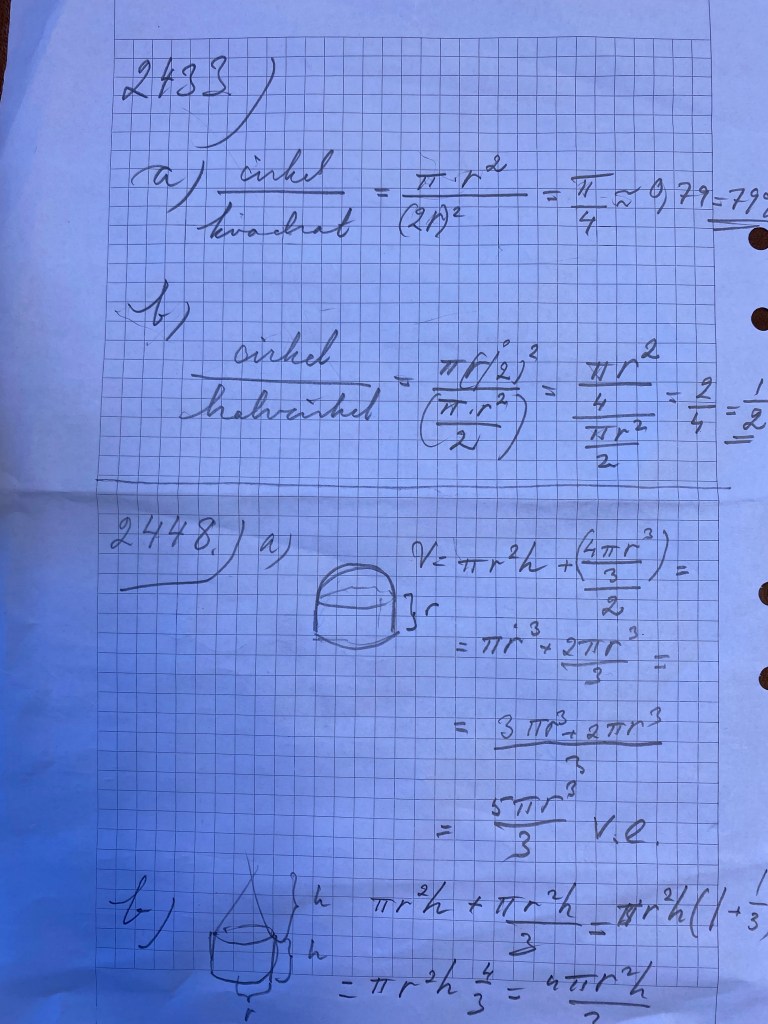 2433)
a) cirkel / kvadrat = π·r² / (2r)² = π/4 ≈ 0,79 = 79%
b) cirkel / halvcirkel = π(r/2)² / (π·r²/2) = (πr²/4) / (πr²/2) = 2/4 = 1/2
2448.) a) V = πr²h + ((4πr³/3)/2) =
r
= πr³ + 2πr³/3 =
= (3πr³ + 2πr³)/3
= 5πr³/3 v.e.
b) h h r πr²h + πr²h/3 = πr²h(1 + 1/3)
= πr²h 4/3 = 4πr²h/3